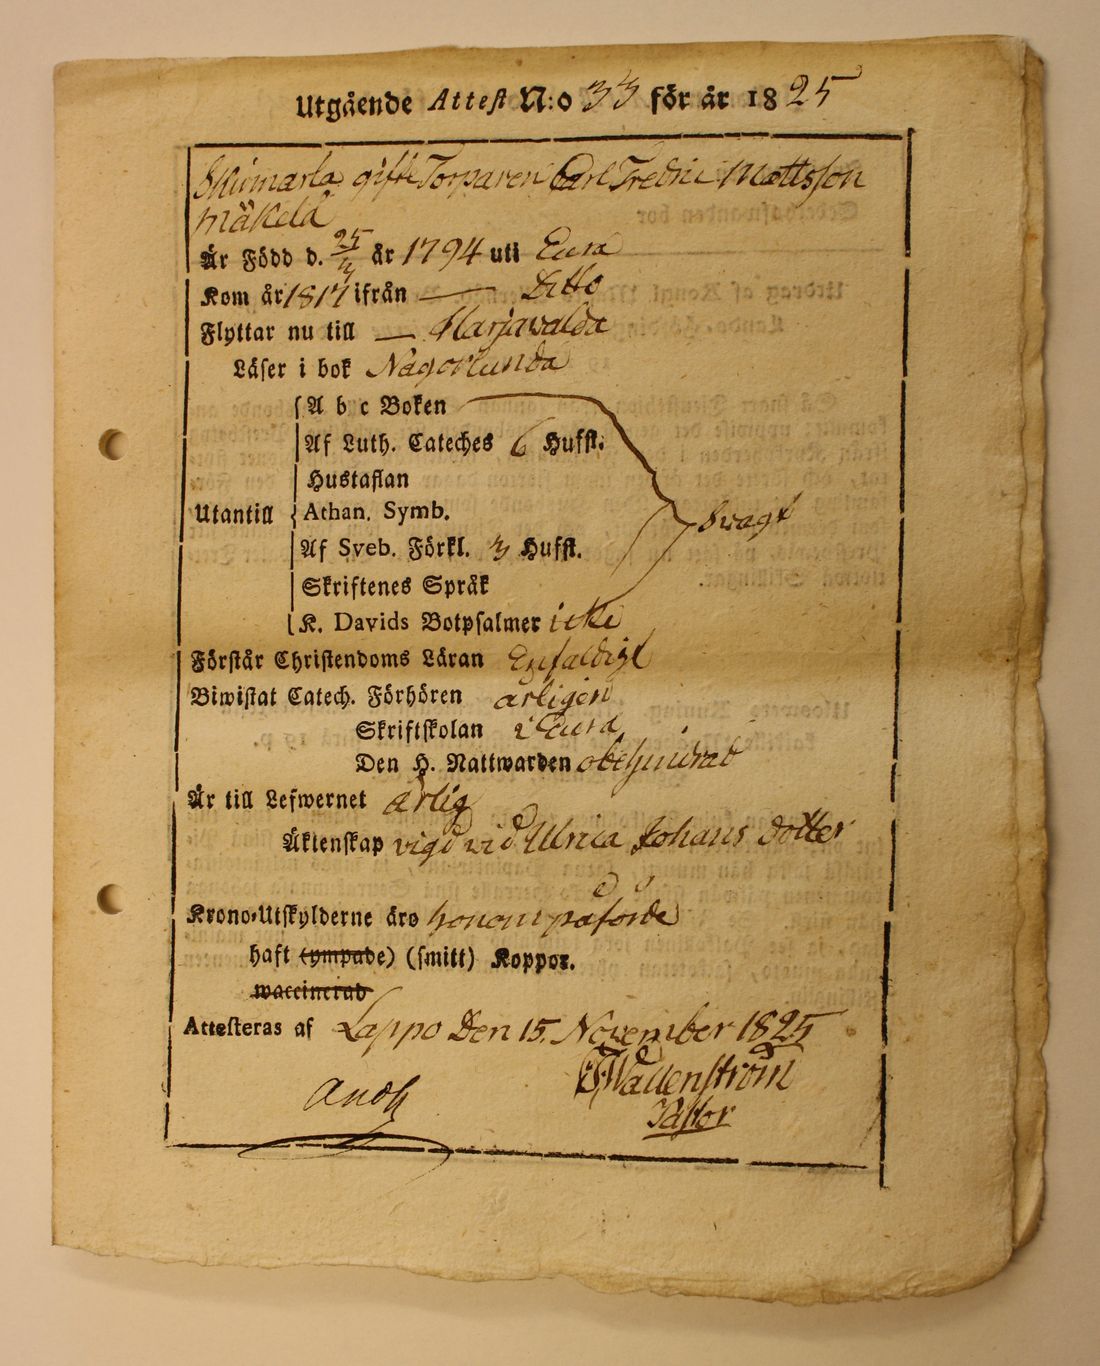 Utgående Attest N:o 33 för år 1825
gifte Torparen Carl Fredric Mattsson
Mäkelä
Är Född d. 25/4 år 1794 uti Eura
Kom år 1817 ifrån — Ditto
Flyttar nu till — Harjawalda
Läser i bok Någorlunda
A b c Boken
Af Luth. Cateches 6 Huffst.
Hustaflan
Utantill Athan. Symb. Swagt
Af Sveb. Förkl. 3 Huffst.
Skriftenes Språk
K. Davids Botpsalmer icke
Förstår Christendoms Läran Enfaldigt
Biwistat Catech. Förhören årligen
Skriftskolan i Eura
Den H. Nattwarden obehindrad
Är till Lefwernet ärlig
Äktenskap vigd wid Ulrica Johans dotter
Krono-Utskylderne äro honom påförde
haft (ympade) (smitt) Koppor.
waccinerad
Attesteras af Lappo Den 15. November 1825
Wallenström
Pastor